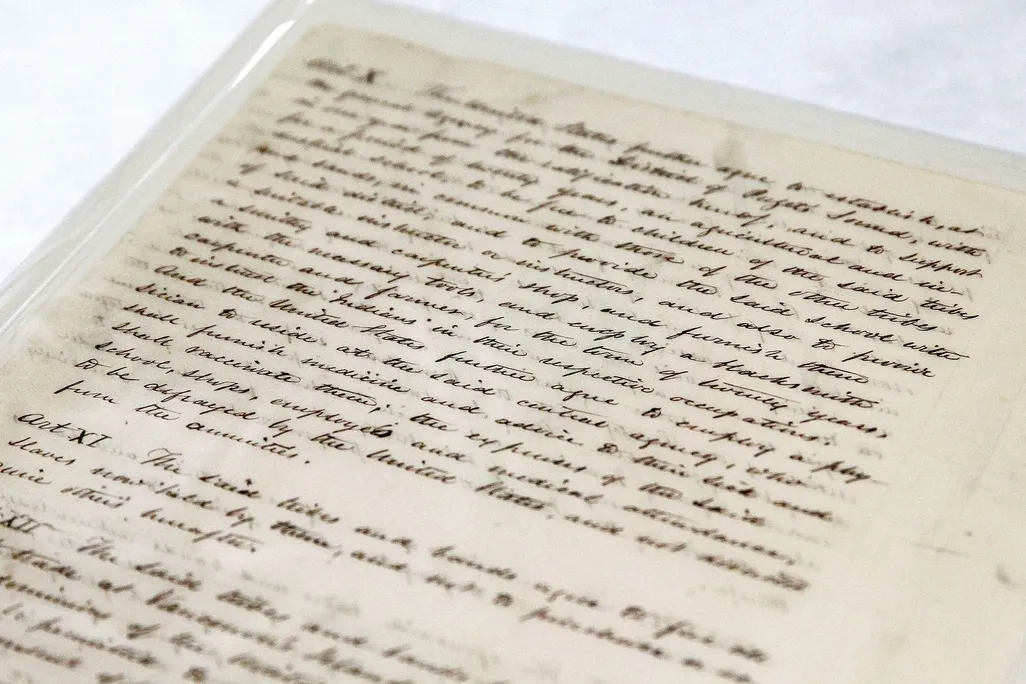 Art. X The United States further agree to establish, at
the general agency for the district of Pugets Sound, with
in one year from the ratification hereof, and to support
for a period of twenty years an agricultural and in
school to be free to children of the said tribes
and bands, in common with those of the other tribes
of said district, and to provide the said school with
a suitable instructor or instructors, and also to provide
a smithy and carpenters shop, and furnish them
with the necessary tools, and employ a blacksmith
carpenter and farmer for the term of twenty years,
to instruct the Indians in their respective occupations.
And the United States further agree to employ a phy-
sician to reside at the said central agency, who
shall furnish medicine and advice to their sick and
shall vaccinate them; the expenses of the said
school, shops, employés and medical attendance,
to be defrayed by the United States, and not deducted
from the annuities.
Art XI The said tribes and bands agree to free all
slaves now held by them, and not to purchase or
quire others hereafter.
XII The said tribes and bands
trade at Vancouver's Island
of the